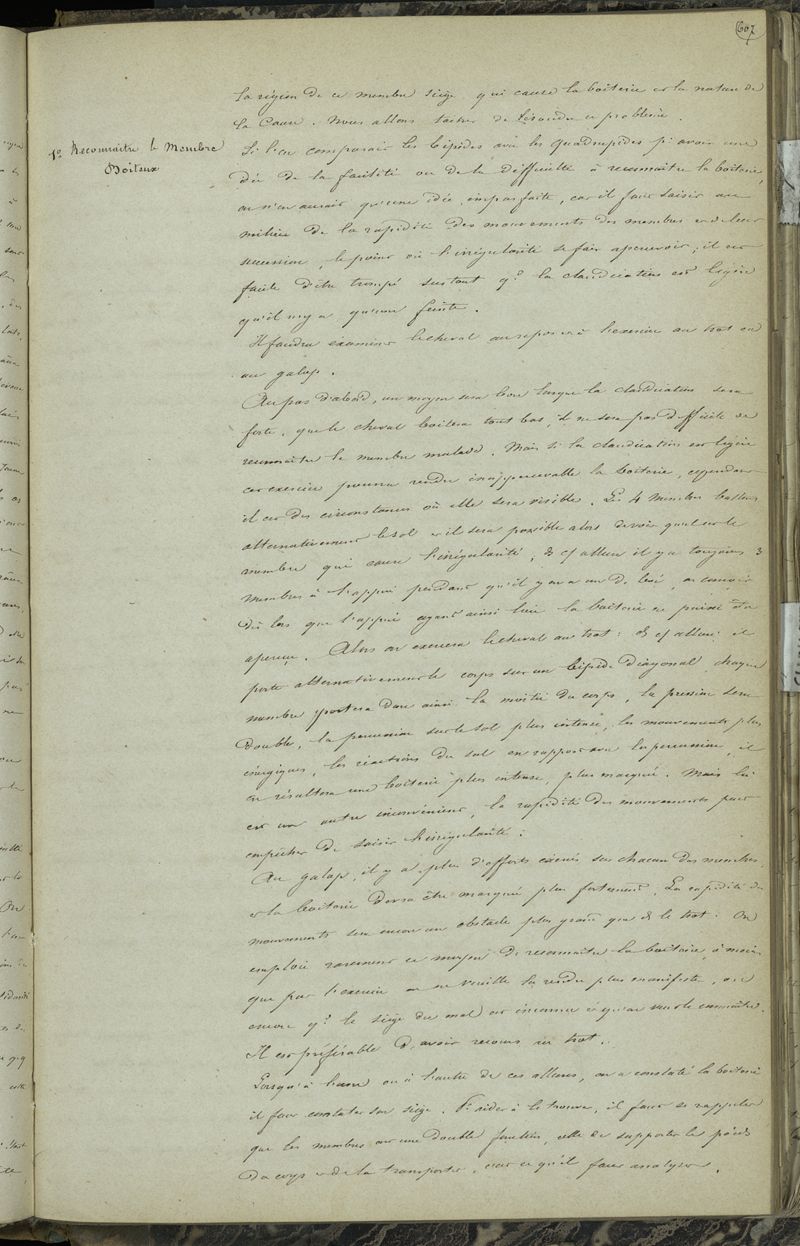 607
la région de ce membre siège qui cause la boiterie et la nature de
la cause. Nous allons tacher de résoudre ce problème.
1º Reconnaitre le Membre
Boiteux
Si l'on comparait les bipèdes avec les quadrupèdes pr avoir une
idée de la facilité ou de la difficulté à reconnaitre la boiterie,
on n'en aurait qu'une idée imparfaite, car il faut saisir au
milieu de la rapidité des mouvements des membres et de leur
succession, le point où l'irrégularité se fait apercevoir; il est
facile d'être trompé surtout qd la claudication est légère
qu'il n'y a qu'une feinte.
Il faudra examiner le cheval au repos et à l'exercice au trot et
au galop.
Au pas d'abord, ce moyen sera bon lorsque la claudication sera
forte, que le cheval boitera tout bas, il ne sera pas difficile de
reconnaitre le membre malade. Mais si la claudication est légère
cet exercice pourra rendre inappercevable la boiterie, cependant
il est des circonstances où elle sera visible. Les 4 membres battent
alternativement le sol et il sera possible alors de voir quel est le
membre qui cause l'irrégularité; ds cette allure il y a toujours 3
membres à l'appui pendant qu'il y en a un de levé, on conçoit
dès lors que l'appui ayant ainsi lieu la boiterie ne puisse être
aperçue. Alors on exercera le cheval au trot: ds cette allure il
porte alternativement le corps sur un bipède diagonal, chaque
membre portera donc ainsi la moitié du corps, la pression sera
double, la percussion sur le sol plus intense, les mouvements plus
énergiques, les réactions du sol en rapport avec la percussion, il
en résultera une boiterie plus intense, plus marquée. Mais là
est un autre inconvénient, la rapidité des mouvements peut
empêcher de saisir l'irrégularité.
Au galop, il y a plus d'efforts exercés sur chacun des membres
et la boiterie devra être marquée plus fortement. La rapidité des
mouvements sera encore un obstacle plus grand que ds le trot. On
emploie rarement ce moyen de reconnaitre la boiterie, à moins
que par l'exercice on ne veuille la rendre plus manifeste, ou
encore qd le siège du mal est inconnu et qu'on veut le connaitre.
Il est préférable d'avoir recours au trot.
Lorsqu'à l'une ou à l'autre de ces allures, on a constaté la boiterie
il faut constater son siège. Pr aider à le trouver, il faut se rappeler
que les membres ont une double fonction, celle de supporter le poids
du corps et de le transporter, c'est ce qu'il faut analyser.